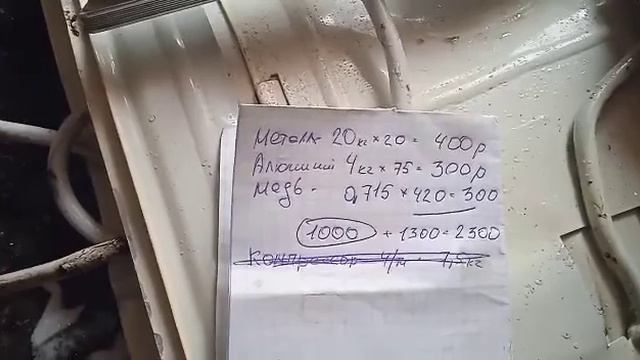 Металл 20кг × 20 = 400р
Алюминий 4кг × 75 = 300р
Медь - 0,715 × 420 = 300
1000 + 1300 = 2300
Компрессор ч/м - 7,5кг